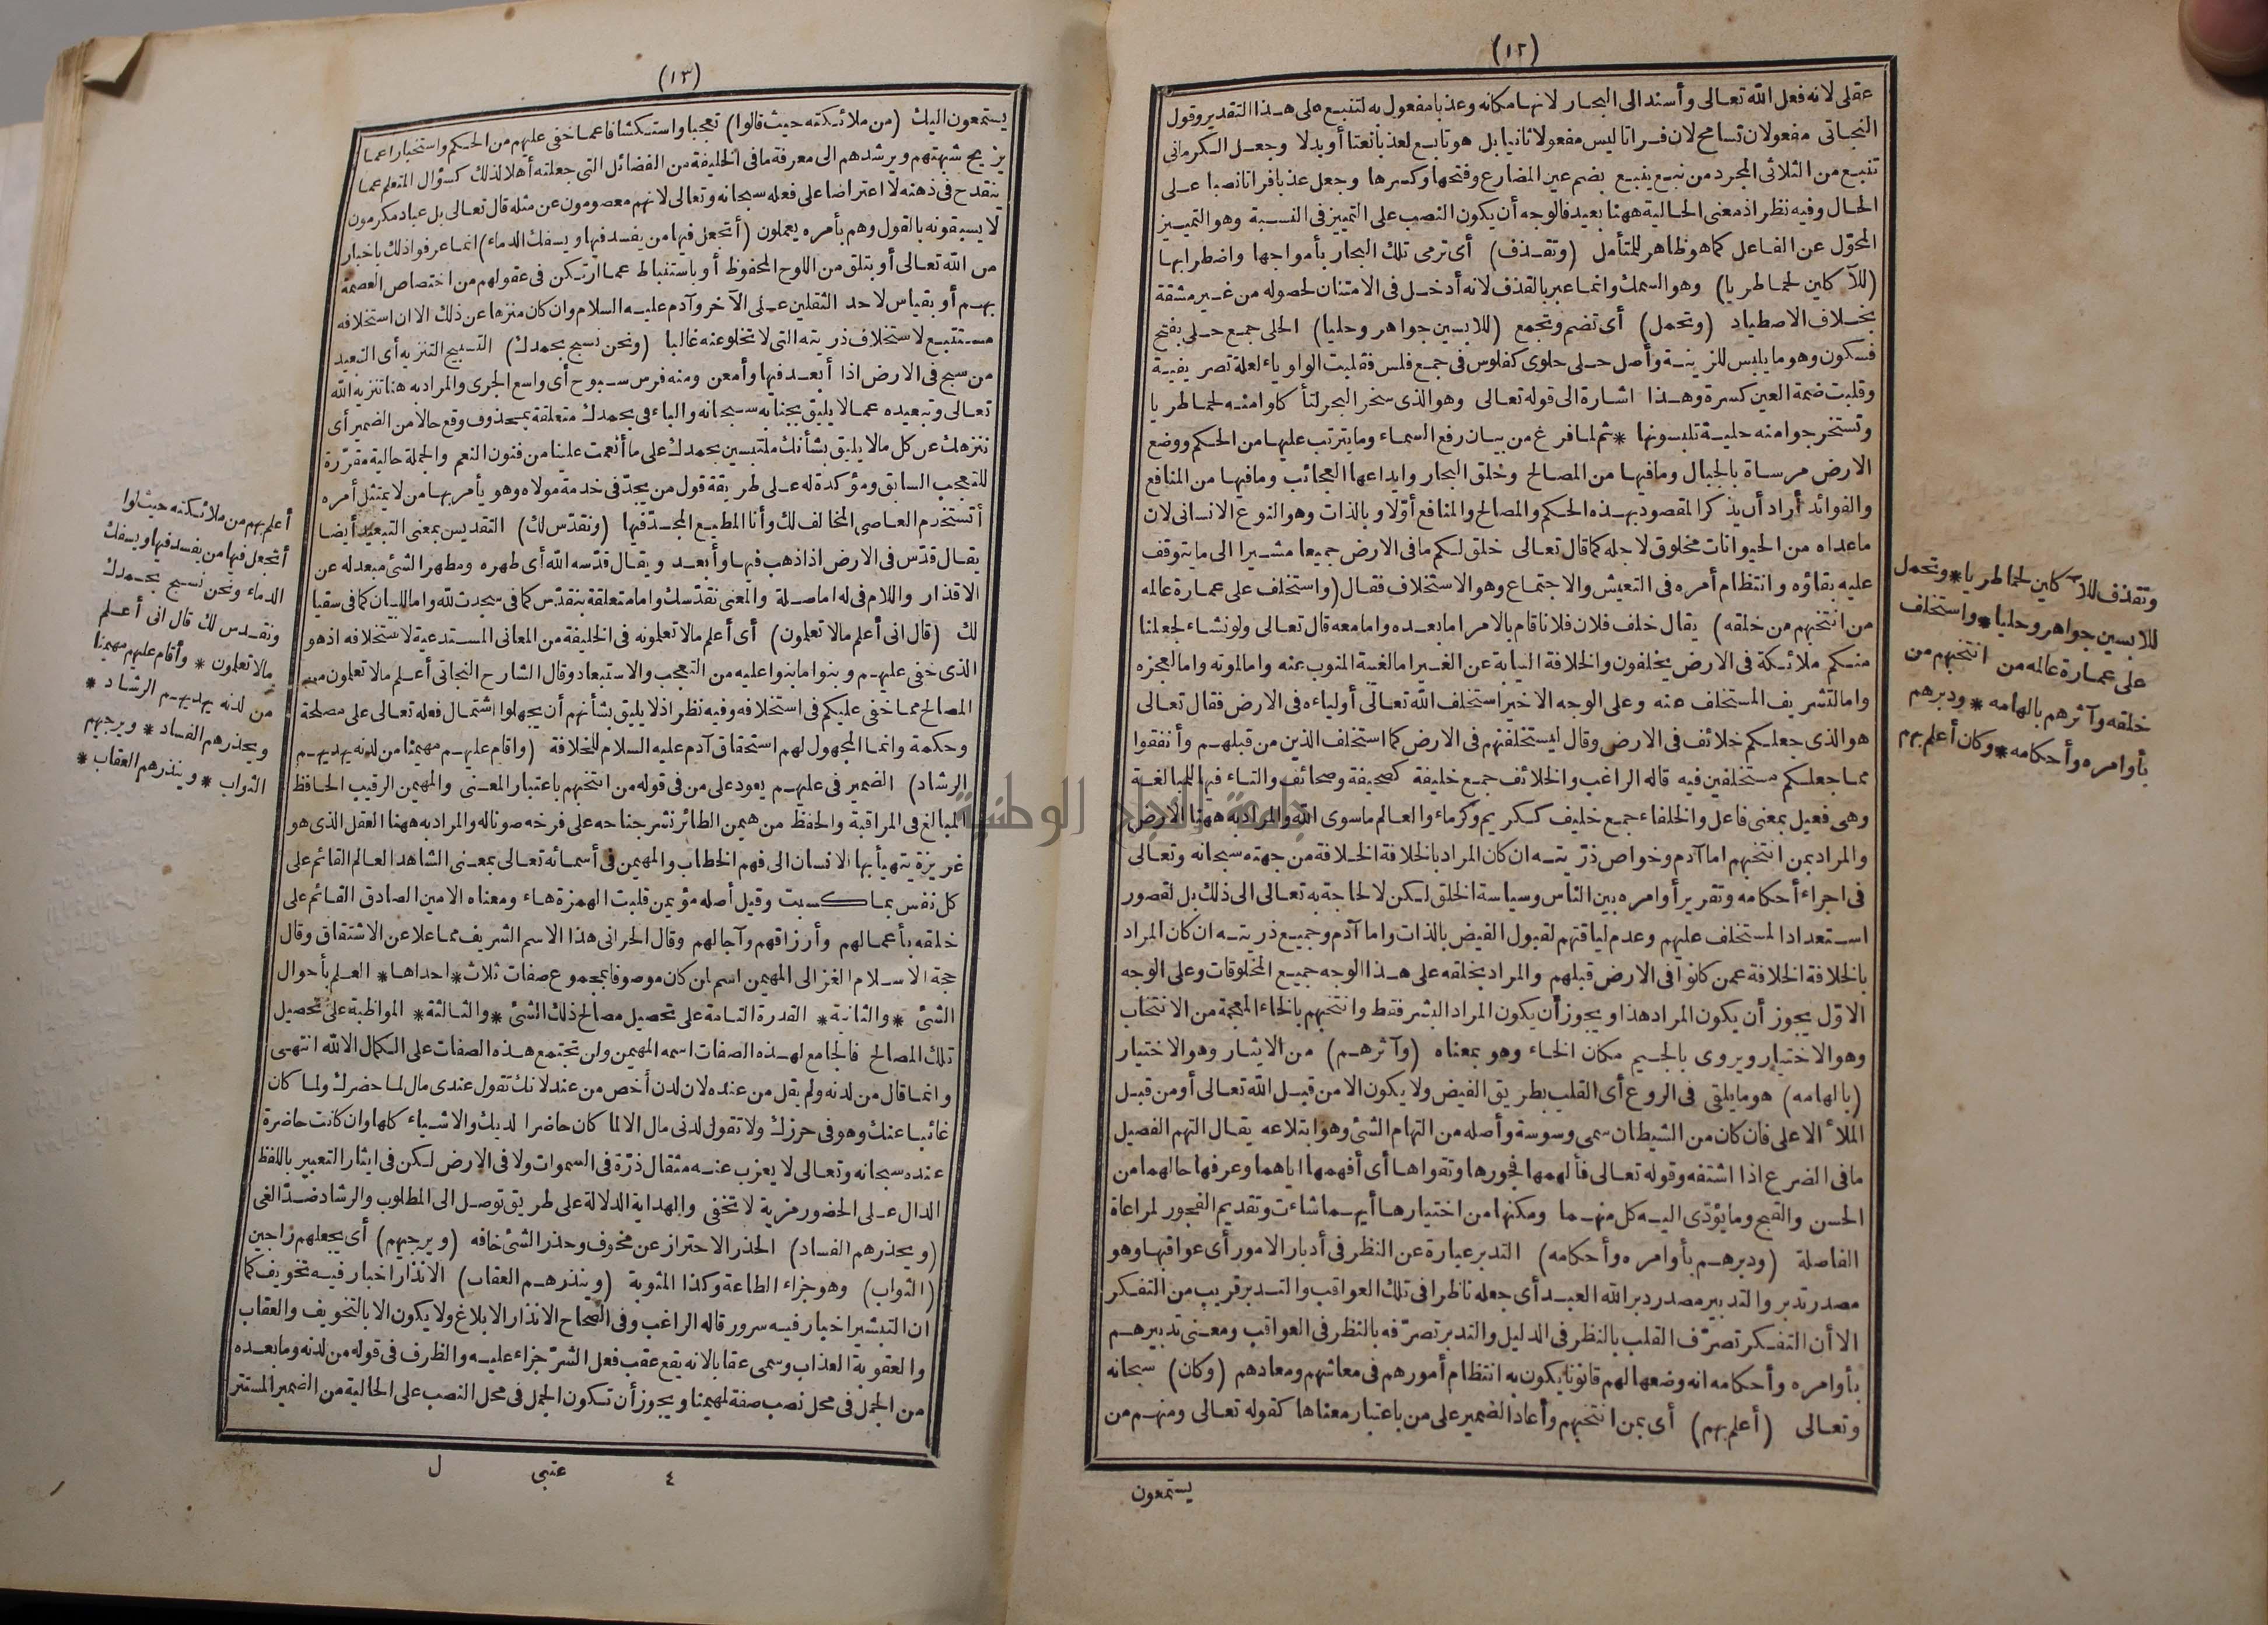 (١٢)
عقلى لانه فعل الله تعالى وأسند الى البحار لانها مكانه وعذبا مفعول به لتنبع على هذا التقدير وقول
النجاتى مفعولان تسامح لان فراتا ليس مفعولا ثانيا بل هو تابع لعذبا نعتا أو بدلا وجعل الكرمانى
تنبع من الثلاثى المجرد من نبع ينبع بضم عين المضارع وفتحها وكسرها وجعل عذبا فراتا نصبا على
الحال وفيه نظر اذ معنى الحالية ههنا بعيد فالوجه أن يكون النصب على التمييز فى النسبة وهو التمييز
المحوّل عن الفاعل كما هو ظاهر للمتأمل (وتقذف) أى ترمى تلك البحار بأمواجها واضطرابها
(للآكلين لحما طريا) وهو السمك وانما عبر بالقذف لانه أدخل فى الامتنان لحصوله من غير مشقة
بخلاف الاصطياد (وتحمل) أى تضم وتجمع (للابسين جواهر وحليا) الحلى جمع حلى بفتح
فسكون وهو ما يلبس للزينة وأصل حلى حلوى كفلوس فى جمع فلس فقلبت الواو ياء لعلة تصريفية
وقلبت ضمة العين كسرة وهذا اشارة الى قوله تعالى وهو الذى سخر البحر لتأكلوا منه لحما طريا
وتستخرجوا منه حلية تلبسونها * ثم لما فرغ من بيان رفع السماء وما يترتب عليها من الحكم ووضع
الارض مرساة بالجبال وما فيها من المصالح وخلق البحار وايداعها العجائب وما فيها من المنافع
والفوائد أراد أن يذكر المقصود بهذه الحكم والمصالح والمنافع أوّلا وبالذات وهو النوع الانسانى لان
ماعداه من الحيوانات مخلوق لاجله كما قال تعالى خلق لكم ما فى الارض جميعا مشيرا الى ما يتوقف
عليه بقاؤه وانتظام أمره فى التعيش والاجتماع وهو الاستخلاف فقال (واستخلف على عمارة عالمه
من انتخبهم من خلقه) يقال خلف فلان فلانا قام بالامر اما بعده واما معه قال تعالى ولو نشاء لجعلنا
منكم ملائكة فى الارض يخلفون والخلافة النيابة عن الغير اما لغيبة المنوب عنه واما لموته واما لعجزه
واما لتشريف المستخلف عنه وعلى الوجه الاخير استخلف الله تعالى أولياءه فى الارض فقال تعالى
هو الذى جعلكم خلائف فى الارض وقال ليستخلفنهم فى الارض كما استخلف الذين من قبلهم وأنفقوا
مما جعلكم مستخلفين فيه قاله الراغب والخلائف جمع خليفة كصحيفة وصحائف والتاء فيها للمبالغة
وهى فعيل بمعنى فاعل والخلفاء جمع خليف ككريم وكرماء والعالم ماسوى الله والمراد به ههنا الارض
والمراد بمن انتخبهم اما آدم وخواص ذرّيته ان كان المراد بالخلافة الخلافة من جهته سبحانه وتعالى
فى اجراء أحكامه وتقرير أوامره بين الناس وسياسة الخلق لكن لا لحاجة به تعالى الى ذلك بل لقصور
استعداد المستخلف عليهم وعدم لياقتهم لقبول الفيض بالذات واما آدم وجميع ذريته ان كان المراد
بالخلافة الخلافة عمن كانوا فى الارض قبلهم والمراد بخلقه على هذا الوجه جميع المخلوقات وعلى الوجه
الاوّل يجوز أن يكون المراد هذا ويجوز أن يكون المراد البشر فقط وانتخبهم بالخاء المعجمة من الانتخاب
وهو الاختيار ويروى بالجيم مكان الخاء وهو بمعناه (وآثرهم) من الايثار وهو الاختيار
(بالهامه) هو ما يلقى فى الروع أى القلب بطريق الفيض ولا يكون الا من قبل الله تعالى أو من قبل
الملأ الاعلى فان كان من الشيطان سمى وسوسة وأصله من التهام الشئ وهو ابتلاعه يقال التهم الفصيل
مافى الضرع اذا اشتفه وقوله تعالى فألهمها فجورها وتقواها أى أفهمها اياهما وعرفها حالهما من
الحسن والقبح وما يؤدّى اليه كل منهما ومكنها من اختيارها أيهما شاءت وتقديم الفجور لمراعاة
الفاصلة (ودبرهم بأوامره وأحكامه) التدبر عبارة عن النظر فى أدبار الامور أى عواقبها وهو
مصدر تدبر والتدبير مصدر دبر الله العبد أى جعله ناظرا فى تلك العواقب والتدبر قريب من التفكر
الا أن التفكر تصرّف القلب بالنظر فى الدليل والتدبر تصرّفه بالنظر فى العواقب ومعنى تدبيرهم
بأوامره وأحكامه انه وضعها لهم قانونا يكون به انتظام أمورهم فى معاشهم ومعادهم (وكان) سبحانه
وتعالى (أعلم بهم) أى بمن انتخبهم وأعاد الضمير على من باعتبار معناها كقوله تعالى ومنهم من
يستمعون
وتقذف للآكلين لحما طريا * وتحمل
للابسين جواهر وحليا * واستخلف
على عمارة عالمه من انتخبهم من
خلقه وآثرهم بالهامه * ودبرهم
بأوامره وأحكامه * وكان أعلم بهم
(١٣)
يستمعون اليك (من ملائكته حيث قالوا) تعجبا واستكشافا عما خفى عليهم من الحكم واستخبارا عما
يزيح شبهتهم ويرشدهم الى معرفة ما فى الخليفة من الفضائل التى جعلته أهلا لذلك كسؤال المتعلم عما
ينقدح فى ذهنه لا اعتراضا على فعله سبحانه وتعالى لانهم معصومون عن مثله قال تعالى بل عباد مكرمون
لا يسبقونه بالقول وهم بأمره يعملون (أتجعل فيها من يفسد فيها ويسفك الدماء) انما عرفوا ذلك باخبار
من الله تعالى أو بتلق من اللوح المحفوظ أو باستنباط عما ارتكن فى عقولهم من اختصاص العصمة
بهم أو بقياس لاحد الثقلين على الآخر وآدم عليه السلام وان كان منزها عن ذلك الا ان استخلافه
مستتبع لاستخلاف ذريته التى لا تخلو عنه غالبا (ونحن نسبح بحمدك) التسبيح التنزيه أى التبعيد
من سبح فى الارض اذا أبعد فيها وأمعن ومنه فرس سبوح أى واسع الجرى والمراد به هنا تنزيه الله
تعالى وتبعيده عما لا يليق بجنابه سبحانه والباء فى بحمدك متعلقة بمحذوف وقع حالا من الضمير أى
ننزهك عن كل ما لا يليق بشأنك ملتبسين بحمدك على ما أنعمت علينا من فنون النعم والجملة حالية مقرّرة
للتعجب السابق ومؤكدة له على طريقة قول من يجدّ فى خدمة مولاه وهو يأمر بها من لا يمتثل أمره
أتستخدم العاصى المخالف لك وأنا المطيع المجدّ فيها (ونقدّس لك) التقديس بمعنى التبعيد أيضا
يقال قدّس فى الارض اذا ذهب فيها وأبعد ويقال قدّسه الله أى طهره ومطهر الشئ مبعد له عن
الاقذار واللام فى له اما صلة والمعنى نقدّسك واما متعلقة بنقدّس كما فى سجدت لله واما للبيان كما فى سقيا
لك (قال انى أعلم مالا تعلمون) أى أعلم مالا تعلمونه فى الخليفة من المعانى المستدعية لاستخلافه اذ هو
الذى خفى عليهم وبنوا ما بنوا عليه من التعجب والاستبعاد وقال الشارح النجاتى أعلم مالا تعلمون من
المصالح مما خفى عليكم فى استخلافه وفيه نظر اذ لا يليق بشأنهم أن يجهلوا اشتمال فعله تعالى على مصلحة
وحكمة وانما المجهول لهم استحقاق آدم عليه السلام للخلافة (وأقام عليهم مهيمنا من لدنه يهديهم
الرشاد) الضمير فى عليهم يعود على من فى قوله من انتخبهم باعتبار المعنى والمهيمن الرقيب الحافظ
المبالغ فى المراقبة والحفظ من هيمن الطائر نشر جناحه على فرخه صونا له والمراد به ههنا العقل الذى هو
غريزة يتهيأ بها الانسان الى فهم الخطاب والمهيمن فى أسمائه تعالى بمعنى الشاهد العالم القائم على
كل نفس بما كسبت وقيل أصله مؤيمن قلبت الهمزة هاء ومعناه الامين الصادق القائم على
خلقه بأعمالهم وأرزاقهم وآجالهم وقال الحرانى هذا الاسم الشريف مما علا عن الاشتقاق وقال
حجة الاسلام الغزالى المهيمن اسم لمن كان موصوفا بمجموع صفات ثلاث * احداها * العلم بأحوال
الشئ * والثانية * القدرة التامة على تحصيل مصالح ذلك الشئ * والثالثة * المواظبة على تحصيل
تلك المصالح فالجامع لهذه الصفات اسمه المهيمن ولن تجتمع هذه الصفات على الكمال الا لله انتهى
وانما قال من لدنه ولم يقل من عنده لان لدن أخص من عند لانك تقول عندى مال لما حضرك ولما كان
غائبا عنك وهو فى حرزك ولا تقول لدنى مال الا لما كان حاضرا لديك والاشياء كلها وان كانت حاضرة
عنده سبحانه وتعالى لا يعزب عنه مثقال ذرّة فى السموات ولا فى الارض لكن فى ايثار التعبير باللفظ
الدال على الحضور مزية لا تخفى والهداية الدلالة على طريق توصل الى المطلوب والرشاد ضدّ الغى
(ويحذرهم الفساد) الحذر الاحتراز عن مخوف وحذر الشئ خافه (ويرجيهم) أى يجعلهم راجين
(الثواب) وهو جزاء الطاعة وكذا المثوبة (وينذرهم العقاب) الانذار اخبار فيه تخويف كما
ان التبشير اخبار فيه سرور قاله الراغب وفى الصحاح الانذار الابلاغ ولا يكون الا بالتخويف والعقاب
والعقوبة العذاب وسمى عقابا لانه يقع عقب فعل الشرّ جزاء عليه والظرف فى قوله من لدنه وما بعده
من الجمل فى محل نصب صفة لمهيمنا ويجوز أن تكون الجمل فى محل النصب على الحالية من الضمير المستتر
٤ عتبى ل
أعلم بهم من ملائكته حيث قالوا
أتجعل فيها من يفسد فيها ويسفك
الدماء ونحن نسبح بحمدك
ونقدس لك قال انى أعلم
مالا تعلمون * وأقام عليهم مهيمنا
من لدنه يهديهم الرشاد *
ويحذرهم الفساد * ويرجيهم
الثواب * وينذرهم العقاب *
جامعة النجاح الوطنية